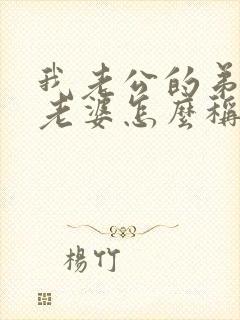 我老公的弟
老婆怎麼稱
楊竹